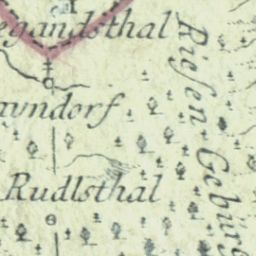 egandsthal
Riesen-Gebürg
undorf
Rudlsthal